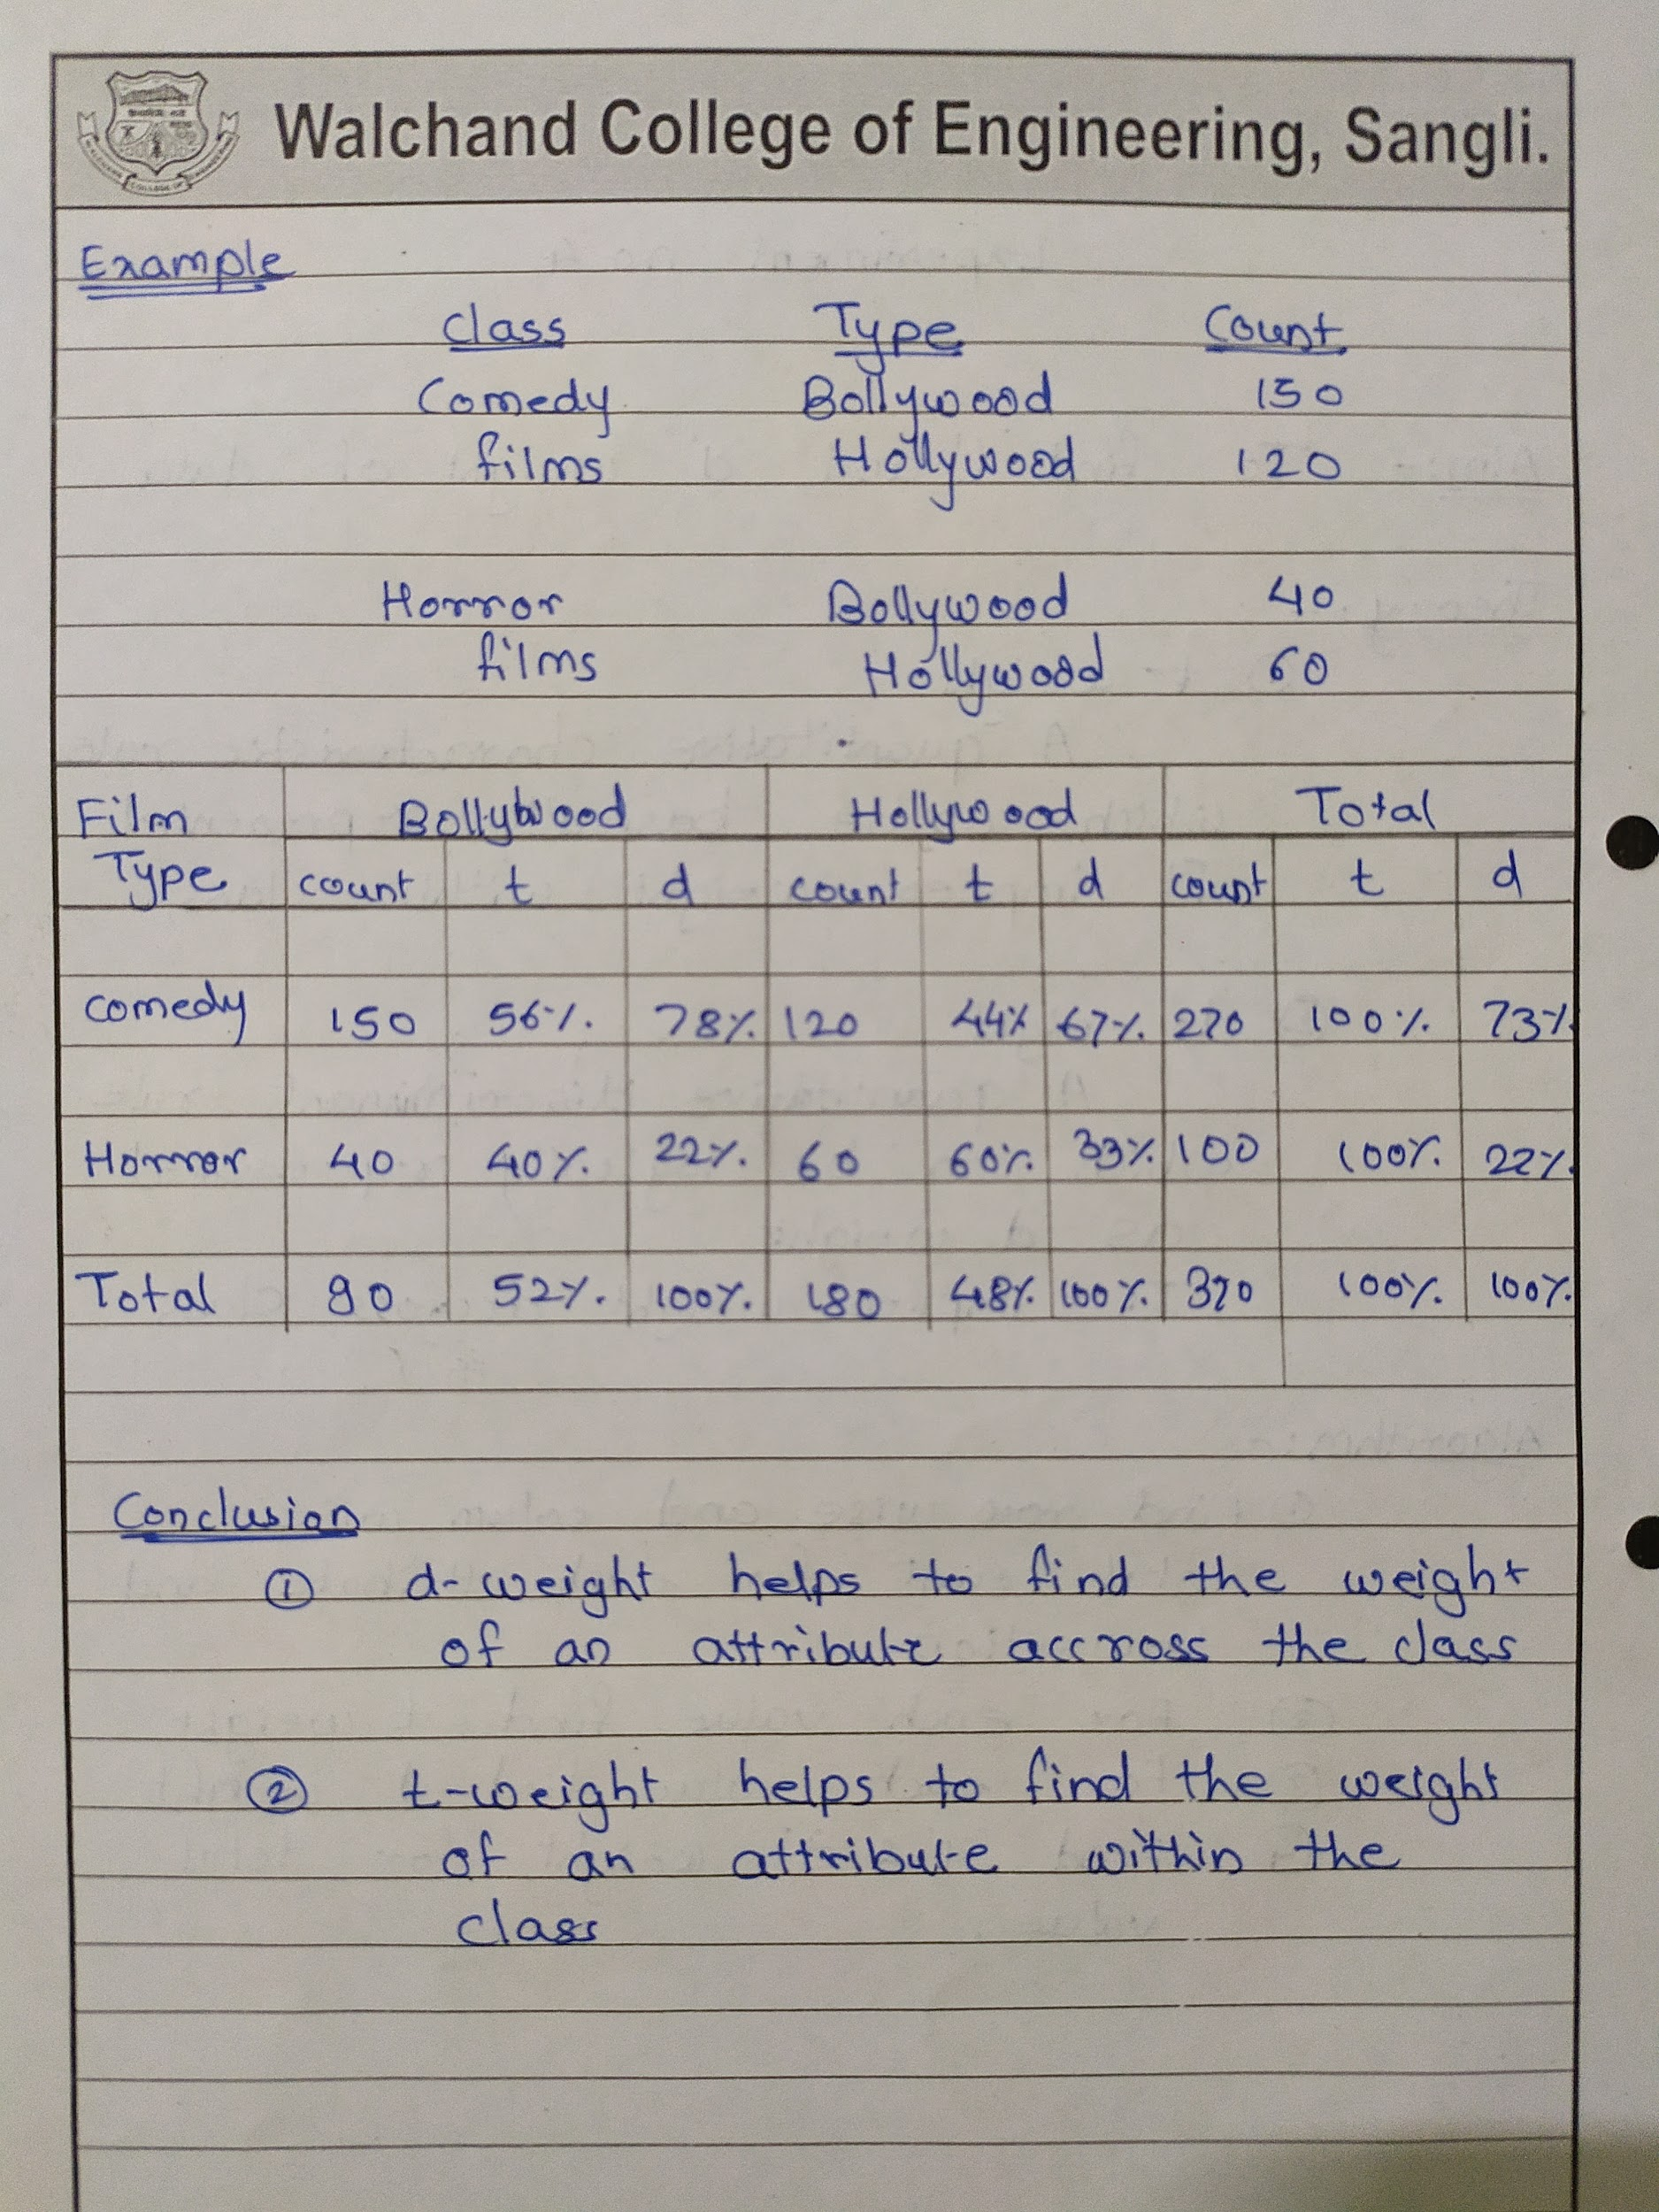 Walchand College of Engineering, Sangli.
Example
Class Type Count
Comedy Bollywood 150
films Hollywood 120
Horror Bollywood 40
films Hollywood 60
Film Bollywood Hollywood Total
Type count t d count t d count t d
comedy 150 56% 78% 120 44% 67% 270 100% 73%
Horror 40 40% 22% 60 60% 33% 100 100% 22%
Total 90 52% 100% 180 48% 100% 370 100% 100%
Conclusion
① d-weight helps to find the weight
of an attribute accross the class
② t-weight helps to find the weight
of an attribute within the
class